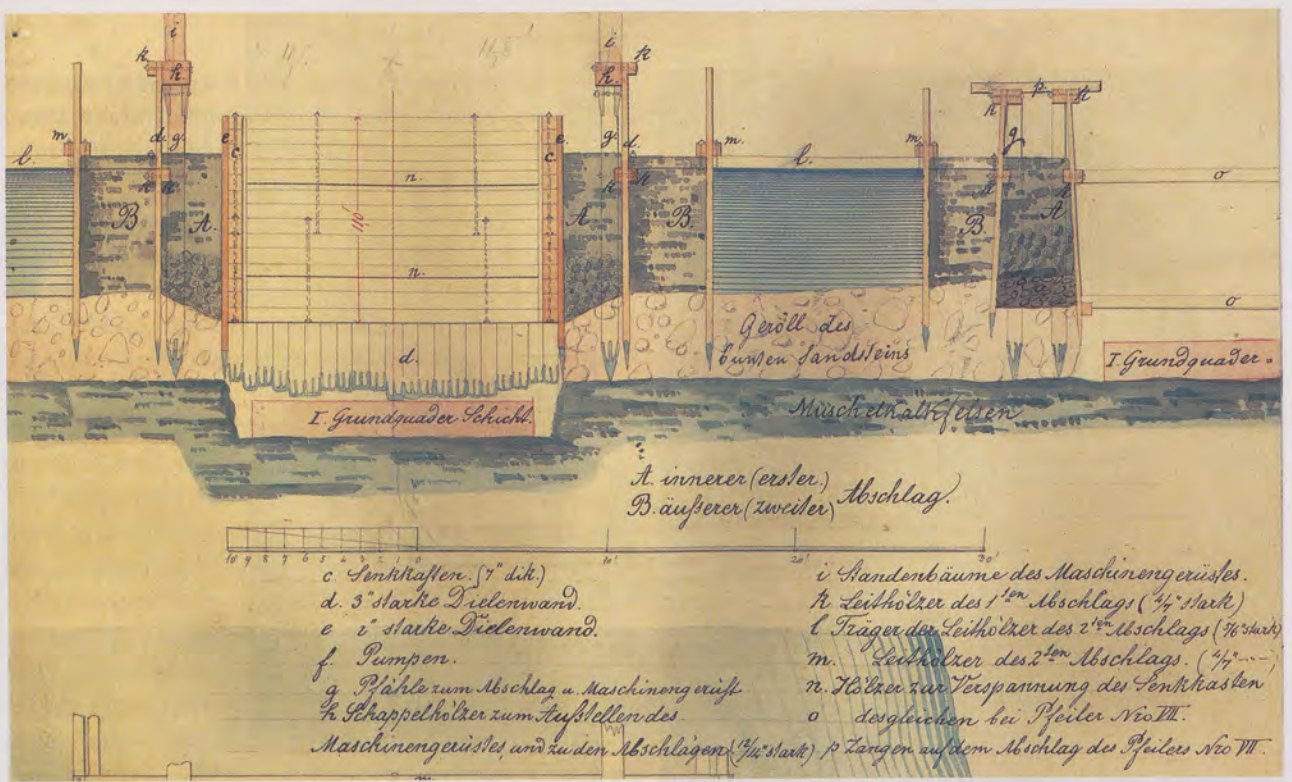 i
i
k
h.
h.
k
k
p
k
m
d.
g.
e.
c.
e.
c.
g.
d.
m.
m.
g
l.
l.
k
k
k
k
k
k
n.
n.
o
o
B
A.
A
B.
B.
A
11,5'
d.
Geröll des
bunten Sandsteins
I. Grundquader Schicht.
I. Grundquader.
Muschelkalkfelsen
A. innerer (erster.)
B. äußerer (zweiter) Abschlag.
10 9 8 7 6 5 4 3 2 1 0 10' 20' 30'
c. Senkkasten. (7" dik.)
d. 3" starke Dielenwand.
e 2" starke Dielenwand.
f. Pumpen.
g Pfähle zum Abschlag u. Maschinengerüst
h Schappelhölzer zum Aufstellen des
Maschinengerüstes, und zu den Abschlägen (12/12" stark)
i Standenbäume des Maschinengerüstes.
k Leithölzer des 1sten Abschlags (4/7" stark)
l Träger der Leithölzer des 2ten Abschlags (7/6" stark)
m. Leithölzer des 2ten Abschlags. (4/7" ----)
n. Hölzer zur Verspannung des Senkkasten
o desgleichen bei Pfeiler Nro VII.
p Zangen auf dem Abschlag des Pfeilers Nro VII.